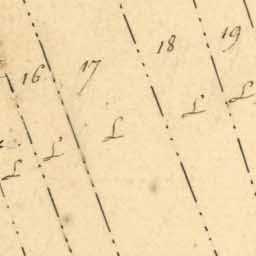 16 17 18 19
L L L L L